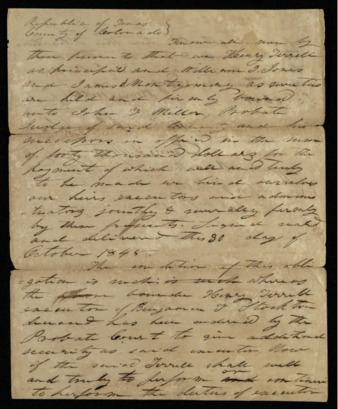 Republic of Texas
County of Colorado
Know all men by
these presents that we Henry Terrell
as principal and William J. Jones
and James Montgomery as sureties
are held and firmly bound
unto John D Miller Probate
Judge of said County and his
successors in office in the sum
of forty thousand dollars for the
payment of which well and truly
to be made we bind ourselves
our heirs executors and adminis
trators jointly & severally firmly
by these presents. Signed sealed
and delivered this 30 day of
October 1845
The condition of this obli
gation is such whereas
the bounden Henry Terrell
executor of Benjamin F
deceased has been ordered by the
Probate Court to give additional
security as said executor Now
if the said Terrell shall well
and truly to perform or continue
to perform the duties of executor